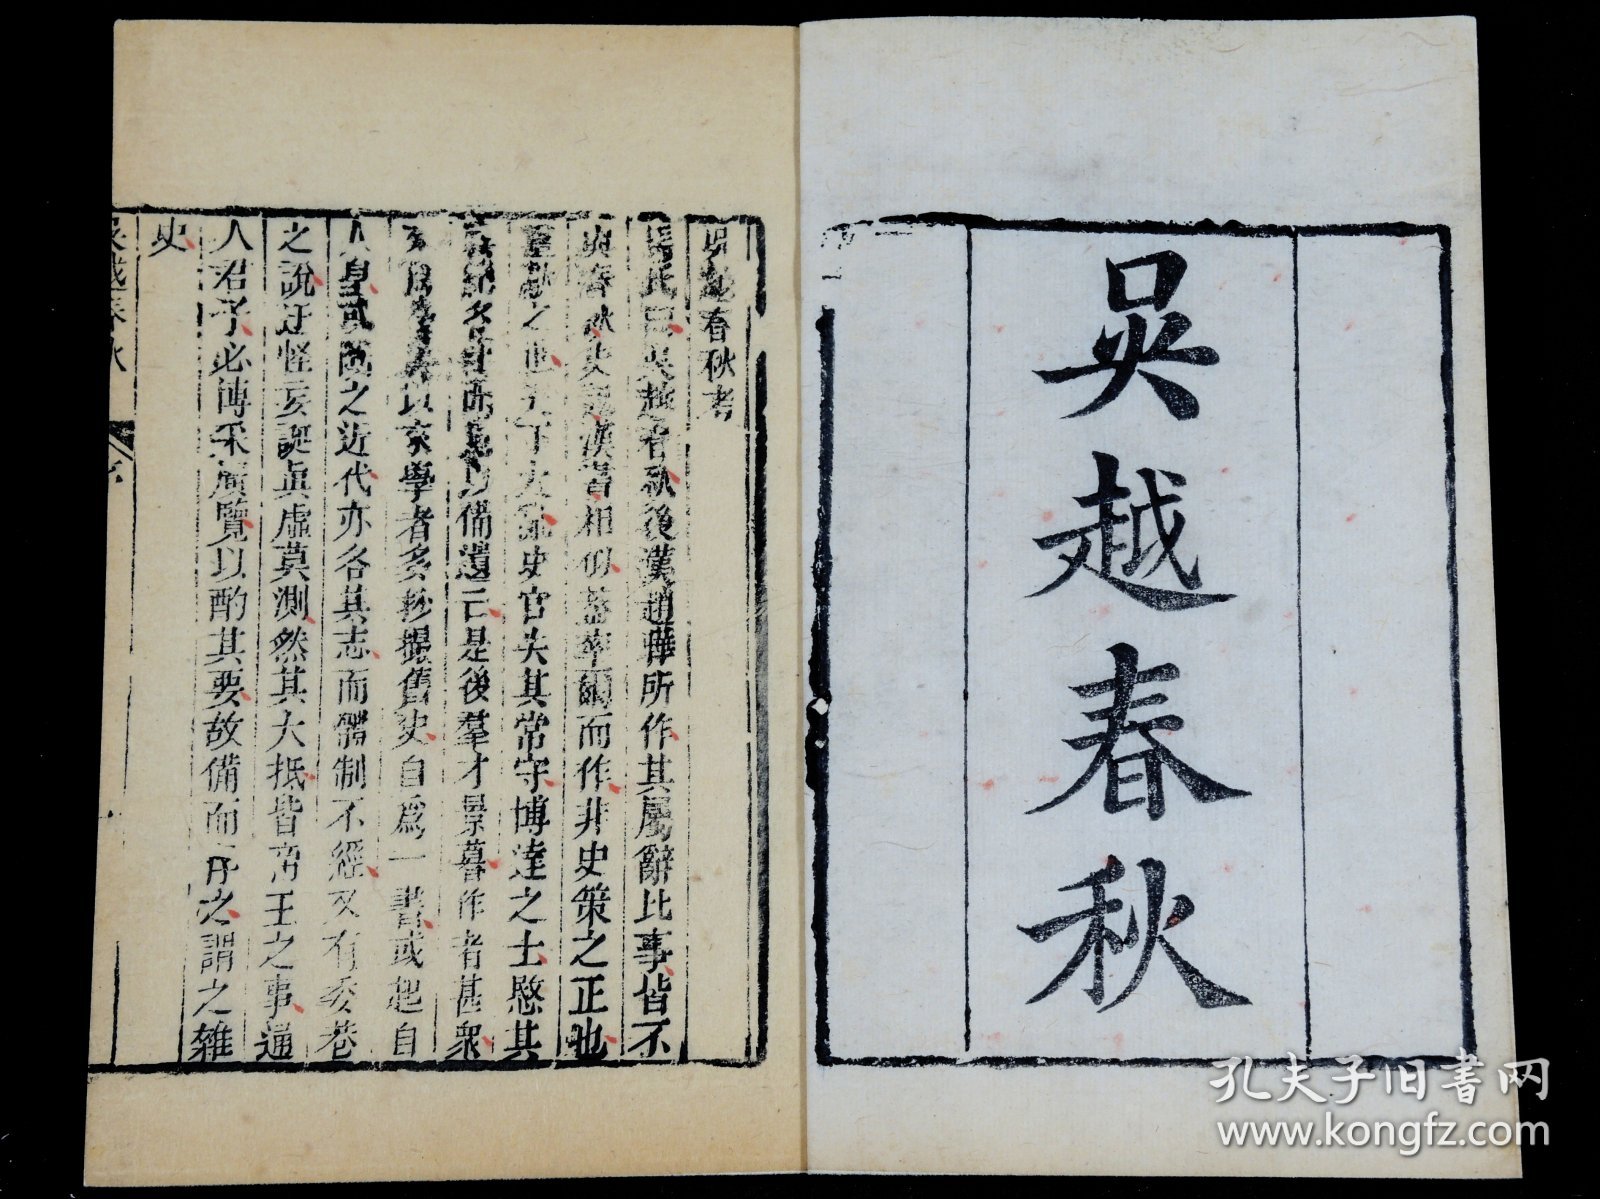 吳越春秋
吳越春秋考
馬氏曰吳越春秋後漢趙曄所作其屬辭比事皆不
與春秋史記漢書相似蓋率爾而作非史策之正也
靈獻之世天下大亂史官失其常守博達之士愍其
廢絕各記所聞以備遺亡是後羣才景慕作者甚衆
又自後漢以來學者多抄撮舊史自爲一書或起自
人皇或斷之近代亦各其志而體制不經又有委巷
之說迂怪妄誕眞虛莫測然其大抵皆帝王之事通
人君子必博采廣覽以酌其要故備而存之謂之雜
史
吳越春秋
孔夫子旧书网
www.kongfz.com